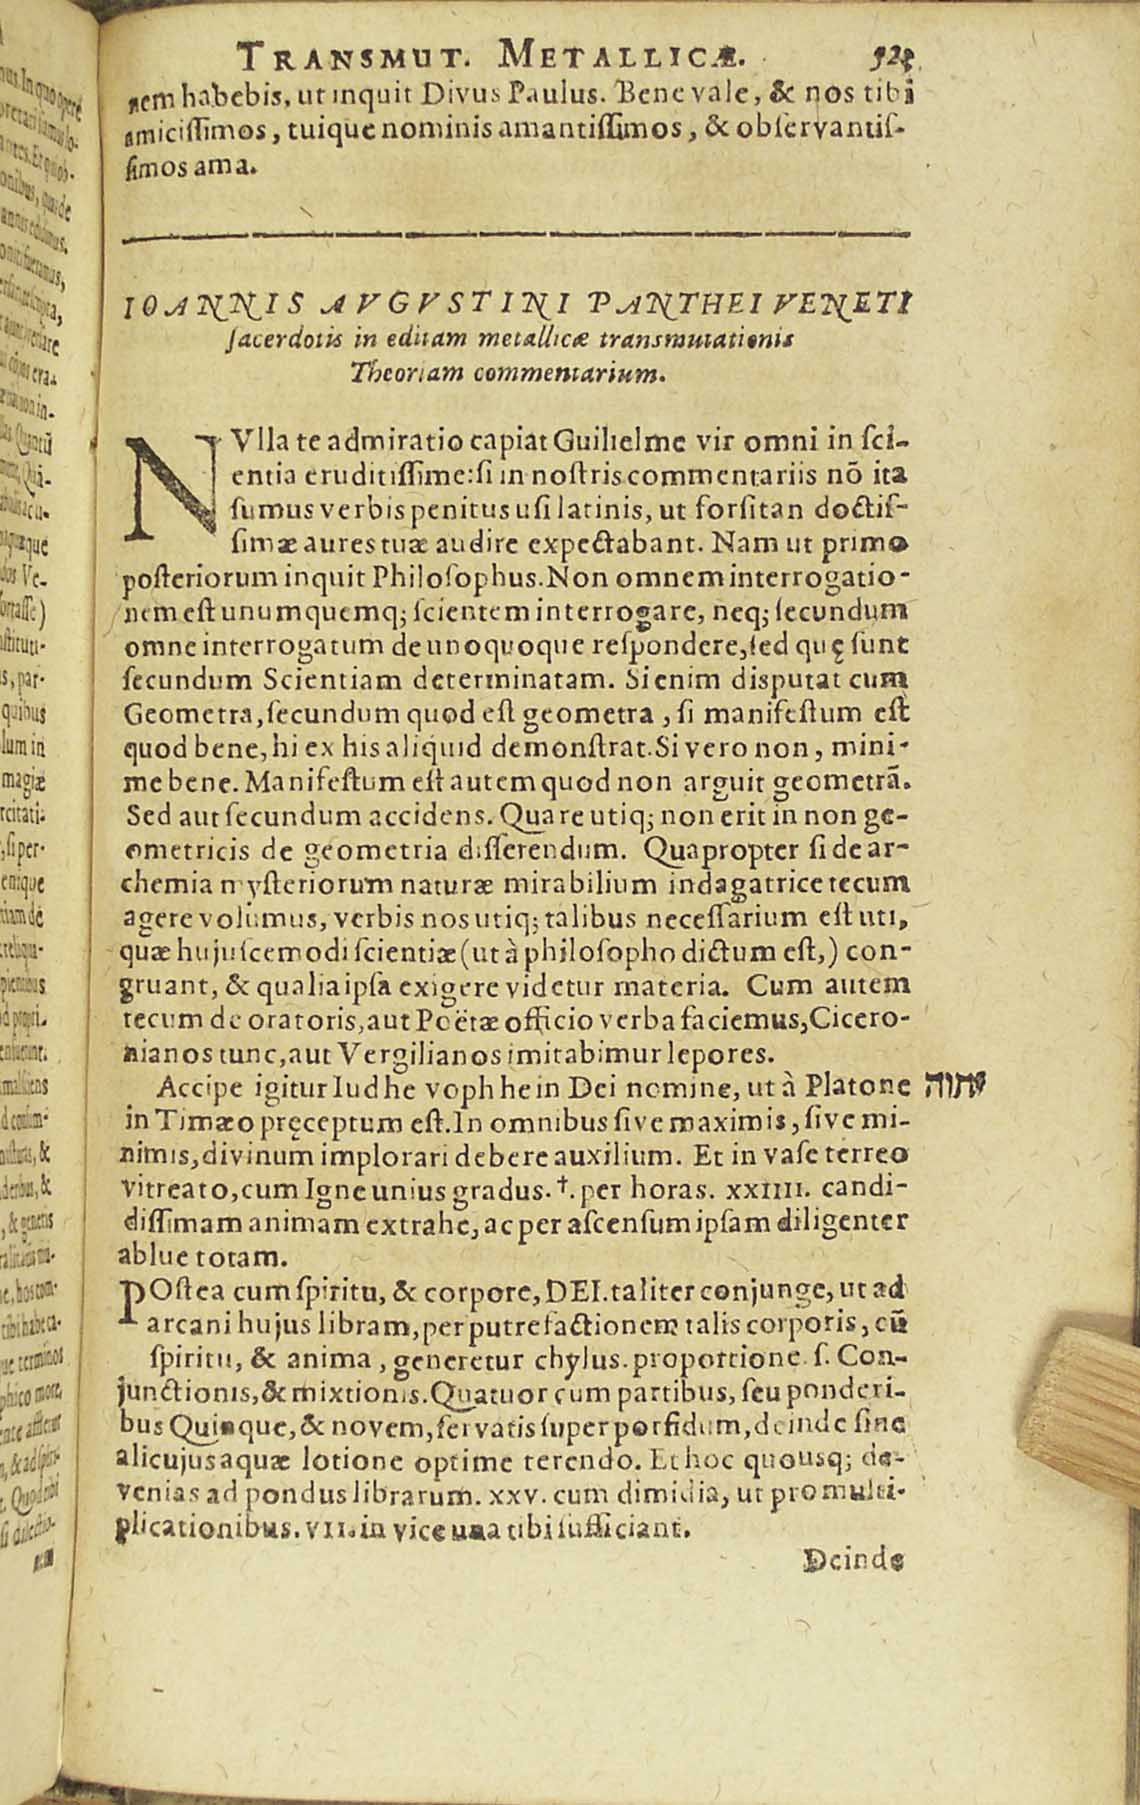 TRANSMUT. METALLICÆ.
nem habebis, ut inquit Divus Paulus. Bene vale, & nos tibi
amicissimos, tuique nominis amantissimos, & observantis-
simos ama.
IOANNIS AVGVSTINI PANTHEI VENETI
sacerdotis in editam metallicæ transmutationis
Theoriam commentarium.
NVlla te admiratio capiat Guilielme vir omni in sci-
entia eruditissime: si in nostris commentariis nõ ita
sumus verbis penitus usi latinis, ut forsitan doctis-
simæ aures tuæ audire expectabant. Nam ut primo
posteriorum inquit Philosophus. Non omnem interrogatio-
nem est unumquemq; scientem interrogare, neq; secundum
omne interrogatum de unoquoque respondere, sed quę sunt
secundum Scientiam determinatam. Si enim disputat cum
Geometra, secundum quod est geometra, si manifestum est
quod bene, hi ex his aliquid demonstrat. Si vero non, mini-
me bene. Manifestum est autem quod non arguit geometrã.
Sed aut secundum accidens. Quare utiq; non erit in non ge-
ometricis de geometria disserendum. Quapropter si de ar-
chemia mysteriorum naturæ mirabilium indagatrice tecum
agere volumus, verbis nos utiq; talibus necessarium est uti,
quæ hujuscemodi scientiæ (ut à philosopho dictum est,) con-
gruant, & qualia ipsa exigere videtur materia. Cum autem
tecum de oratoris, aut Poëtæ officio verba faciemus, Cicero-
nianos tunc, aut Vergilianos imitabimur lepores.
Accipe igitur Iud he voph he in Dei nomine, ut à Platone יהוה
in Timæo pręceptum est. In omnibus sive maximis, sive mi-
nimis, divinum implorari debere auxilium. Et in vase terreo
vitreato, cum Igne unius gradus. †. per horas. XXIIII. candi-
dissimam animam extrahe, ac per ascensum ipsam diligenter
ablue totam.
POstea cum spiritu, & corpore, DEI. taliter conjunge, ut ad
arcani hujus libram, per putrefactionem talis corporis, cũ
spiritu, & anima, generetur chylus. proportione. s. Con-
junctionis, & mixtionis. Quatuor cum partibus, seu ponderi-
bus Quinque, & novem, servatis super porfidum, deinde sine
alicujus aquæ lotione optime terendo. Et hoc quousq; de-
venias ad pondus librarum. XXV. cum dimidia, ut pro multi-
plicationibus. VII. in vice una tibi sufficiant.
Deinde